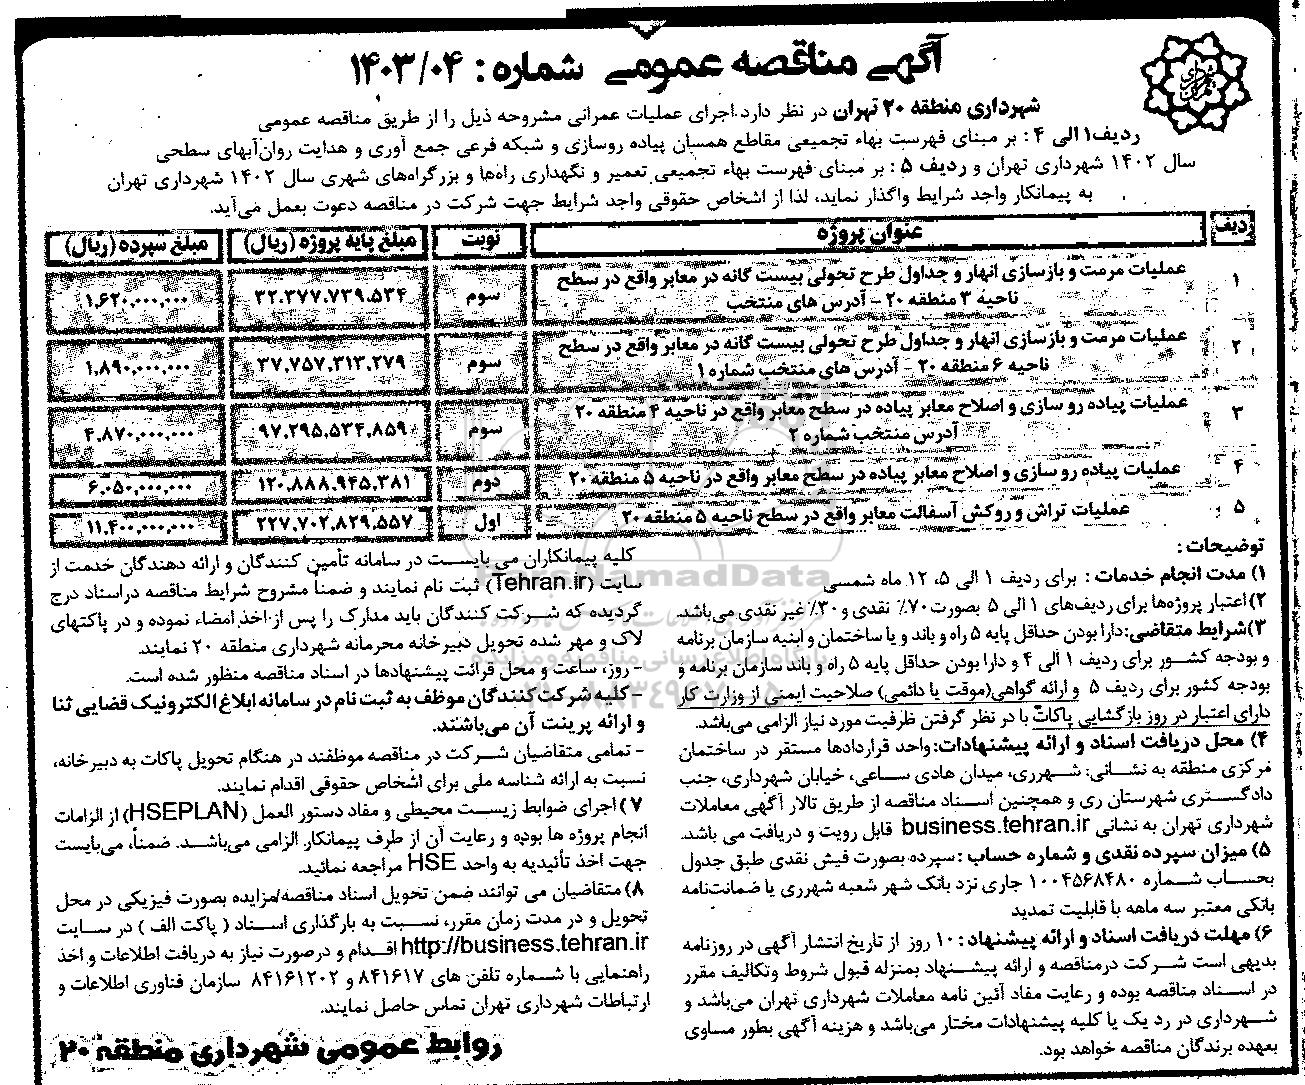 آگهی مناقصه عمومی شماره: ۱۴۰۳/۰۴
شهرداری منطقه ۲۰ تهران در نظر دارد.اجرای عملیات عمرانی مشروحه ذیل را از طریق مناقصه عمومی
ردیف۱ الی ۴ : بر مبنای فهرست بهاء تجمیعی مقاطع همسان پیاده روسازی و شبکه فرعی جمع آوری و هدایت روان‌آبهای سطحی
سال ۱۴۰۲ شهرداری تهران و ردیف ۵ : بر مبنای فهرست بهاء تجمیعی تعمیر و نگهداری راه‌ها و بزرگراه‌های شهری سال ۱۴۰۲ شهرداری تهران
به پیمانکار واجد شرایط واگذار نماید، لذا از اشخاص حقوقی واجد شرایط جهت شرکت در مناقصه دعوت بعمل می‌آید.
ردیف عنوان پروژه نوبت مبلغ پایه پروژه (ریال) مبلغ سپرده (ریال)
۱ عملیات مرمت و بازسازی انهار و جداول طرح تحولی بیست گانه در معابر واقع در سطح
ناحیه ۳ منطقه ۲۰ - آدرس های منتخب سوم ۳۲.۳۷۷.۷۳۹.۵۳۴ ۱.۶۲۰.۰۰۰.۰۰۰
۲ عملیات مرمت و بازسازی انهار و جداول طرح تحولی بیست گانه در معابر واقع در سطح
ناحیه ۶ منطقه ۲۰ - آدرس های منتخب شماره ۱ سوم ۳۷.۷۵۷.۳۱۳.۲۷۹ ۱.۸۹۰.۰۰۰.۰۰۰
۳ عملیات پیاده رو سازی و اصلاح معابر پیاده در سطح معابر واقع در ناحیه ۴ منطقه ۲۰ -
آدرس منتخب شماره ۲ سوم ۹۷.۲۹۵.۵۳۴.۸۵۹ ۴.۸۷۰.۰۰۰.۰۰۰
۴ عملیات پیاده رو سازی و اصلاح معابر پیاده در سطح معابر واقع در ناحیه ۵ منطقه ۲۰ دوم ۱۲۰.۸۸۸.۹۴۵.۳۸۱ ۶.۰۵۰.۰۰۰.۰۰۰
۵ عملیات تراش و روکش آسفالت معابر واقع در سطح ناحیه ۵ منطقه ۲۰ اول ۲۲۷.۷۰۲.۸۲۹.۵۵۷ ۱۱.۴۰۰.۰۰۰.۰۰۰
توضیحات :
۱) مدت انجام خدمات : برای ردیف ۱ الی ۵، ۱۲ ماه شمسی
۲) اعتبار پروژه‌ها برای ردیف‌های ۱ الی ۵ بصورت ۷۰٪ نقدی و ۳۰٪ غیر نقدی می‌باشد.
۳)شرایط متقاضی:دارا بودن حداقل پایه ۵ راه و باند و یا ساختمان و ابنیه سازمان برنامه
و بودجه کشور برای ردیف ۱ الی ۴ و دارا بودن حداقل پایه ۵ راه و باند سازمان برنامه و
بودجه کشور برای ردیف ۵ و ارائه گواهی(موقت یا دائمی) صلاحیت ایمنی از وزارت کار
دارای اعتبار در روز بازگشایی پاکات با در نظر گرفتن ظرفیت مورد نیاز الزامی می‌باشد.
۴) محل دریافت اسناد و ارائه پیشنهادات:واحد قراردادها مستقر در ساختمان
مرکزی منطقه به نشانی: شهرری، میدان هادی ساعی، خیابان شهرداری، جنب
دادگستری شهرستان ری و همچنین اسناد مناقصه از طریق تالار آگهی معاملات
شهرداری تهران به نشانی business.tehran.ir قابل رویت و دریافت می باشد.
۵) میزان سپرده نقدی و شماره حساب : سپرده بصورت فیش نقدی طبق جدول
بحساب شماره ۱۰۰۴۵۶۸۴۸۰ جاری نزد بانک شهر شعبه شهرری یا ضمانت‌نامه
بانکی معتبر سه ماهه با قابلیت تمدید
۶) مهلت دریافت اسناد و ارائه پیشنهاد : ۱۰ روز از تاریخ انتشار آگهی در روزنامه
بدیهی است شرکت درمناقصه و ارائه پیشنهاد بمنزله قبول شروط وتکالیف مقرر
در اسناد مناقصه بوده و رعایت مفاد آئین نامه معاملات شهرداری تهران می‌باشد و
شهرداری در رد یک یا کلیه پیشنهادات مختار می‌باشد و هزینه آگهی بطور مساوی
بعهده برندگان مناقصه خواهد بود.
کلیه پیمانکاران می بایست در سامانه تأمین کنندگان و ارائه دهندگان خدمت از
سایت (Tehran.ir) ثبت نام نمایند و ضمناً مشروح شرایط مناقصه دراسناد درج
گردیده که شرکت کنندگان باید مدارک را پس از اخذ امضاء نموده و در پاکتهای
لاک و مهر شده تحویل دبیرخانه محرمانه شهرداری منطقه ۲۰ نمایند.
- روز، ساعت و محل قرائت پیشنهادها در اسناد مناقصه منظور شده است.
- کلیه شرکت کنندگان موظف به ثبت نام در سامانه ابلاغ الکترونیک قضایی ثنا
و ارائه پرینت آن می‌باشند.
- تمامی متقاضیان شرکت در مناقصه موظفند در هنگام تحویل پاکات به دبیرخانه،
نسبت به ارائه شناسه ملی برای اشخاص حقوقی اقدام نمایند.
۷) اجرای ضوابط زیست محیطی و مفاد دستور العمل (HSEPLAN) از الزامات
انجام پروژه ها بوده و رعایت آن از طرف پیمانکار الزامی می‌باشد. ضمناً، می‌بایست
جهت اخذ تأییدیه به واحد HSE مراجعه نمائید.
۸) متقاضیان می توانند ضمن تحویل اسناد مناقصه/مزایده بصورت فیزیکی در محل
تحویل و در مدت زمان مقرر، نسبت به بارگذاری اسناد ( پاکت الف ) در سایت
http://business.tehran.ir اقدام و درصورت نیاز به دریافت اطلاعات و اخذ
راهنمایی با شماره تلفن های ۸۴۱۶۱۷ و ۸۴۱۶۱۲۰۲ سازمان فناوری اطلاعات و
ارتباطات شهرداری تهران تماس حاصل نمایند.
روابط عمومی شهرداری منطقه ۲۰